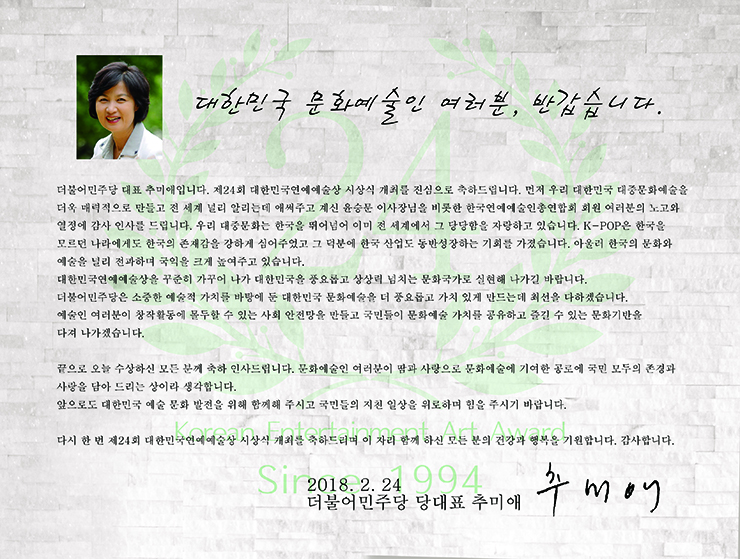 대한민국 문화예술인 여러분, 반갑습니다.
더불어민주당 대표 추미애입니다. 제24회 대한민국연예예술상 시상식 개최를 진심으로 축하드립니다. 먼저 우리 대한민국 대중문화예술을
더욱 매력적으로 만들고 전 세계 널리 알리는데 애써주고 계신 윤승문 이사장님을 비롯한 한국연예예술인총연합회 회원 여러분의 노고와
열정에 감사 인사를 드립니다. 우리 대중문화는 한국을 뛰어넘어 이미 전 세계에서 그 당당함을 자랑하고 있습니다. K-POP은 한국을
모르던 나라에게도 한국의 존재감을 강하게 심어주었고 그 덕분에 한국 산업도 동반성장하는 기회를 가졌습니다. 아울러 한국의 문화와
예술을 널리 전파하며 국익을 크게 높여주고 있습니다.
대한민국연예예술상을 꾸준히 가꾸어 나가 대한민국을 풍요롭고 상상력 넘치는 문화국가로 실현해 나가길 바랍니다.
더불어민주당은 소중한 예술적 가치를 바탕에 둔 대한민국 문화예술을 더 풍요롭고 가치 있게 만드는데 최선을 다하겠습니다.
예술인 여러분이 창작활동에 몰두할 수 있는 사회 안전망을 만들고 국민들이 문화예술 가치를 공유하고 즐길 수 있는 문화기반을
다져 나가겠습니다.
끝으로 오늘 수상하신 모든 분께 축하 인사드립니다. 문화예술인 여러분이 땀과 사랑으로 문화예술에 기여한 공로에 국민 모두의 존경과
사랑을 담아 드리는 상이라 생각합니다.
앞으로도 대한민국 예술 문화 발전을 위해 함께해 주시고 국민들의 지친 일상을 위로하며 힘을 주시기 바랍니다.
Korean Entertainment Art Award
다시 한 번 제24회 대한민국연예예술상 시상식 개최를 축하드리며 이 자리 함께 하신 모든 분의 건강과 행복을 기원합니다. 감사합니다.
Since 1994
2018. 2. 24
더불어민주당 당대표 추미애 추미애
24